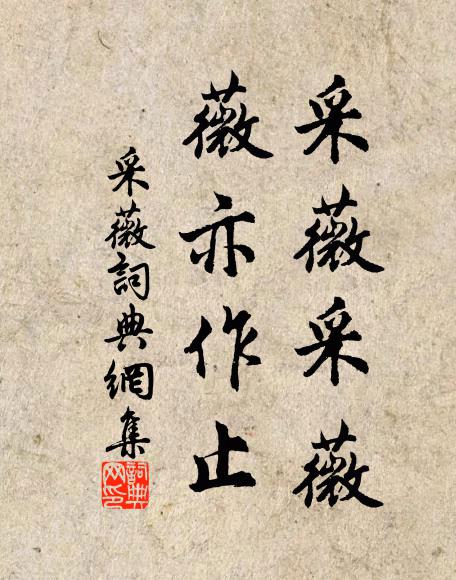 采薇采薇
薇亦作止
采薇詞典網集
詞典
网印